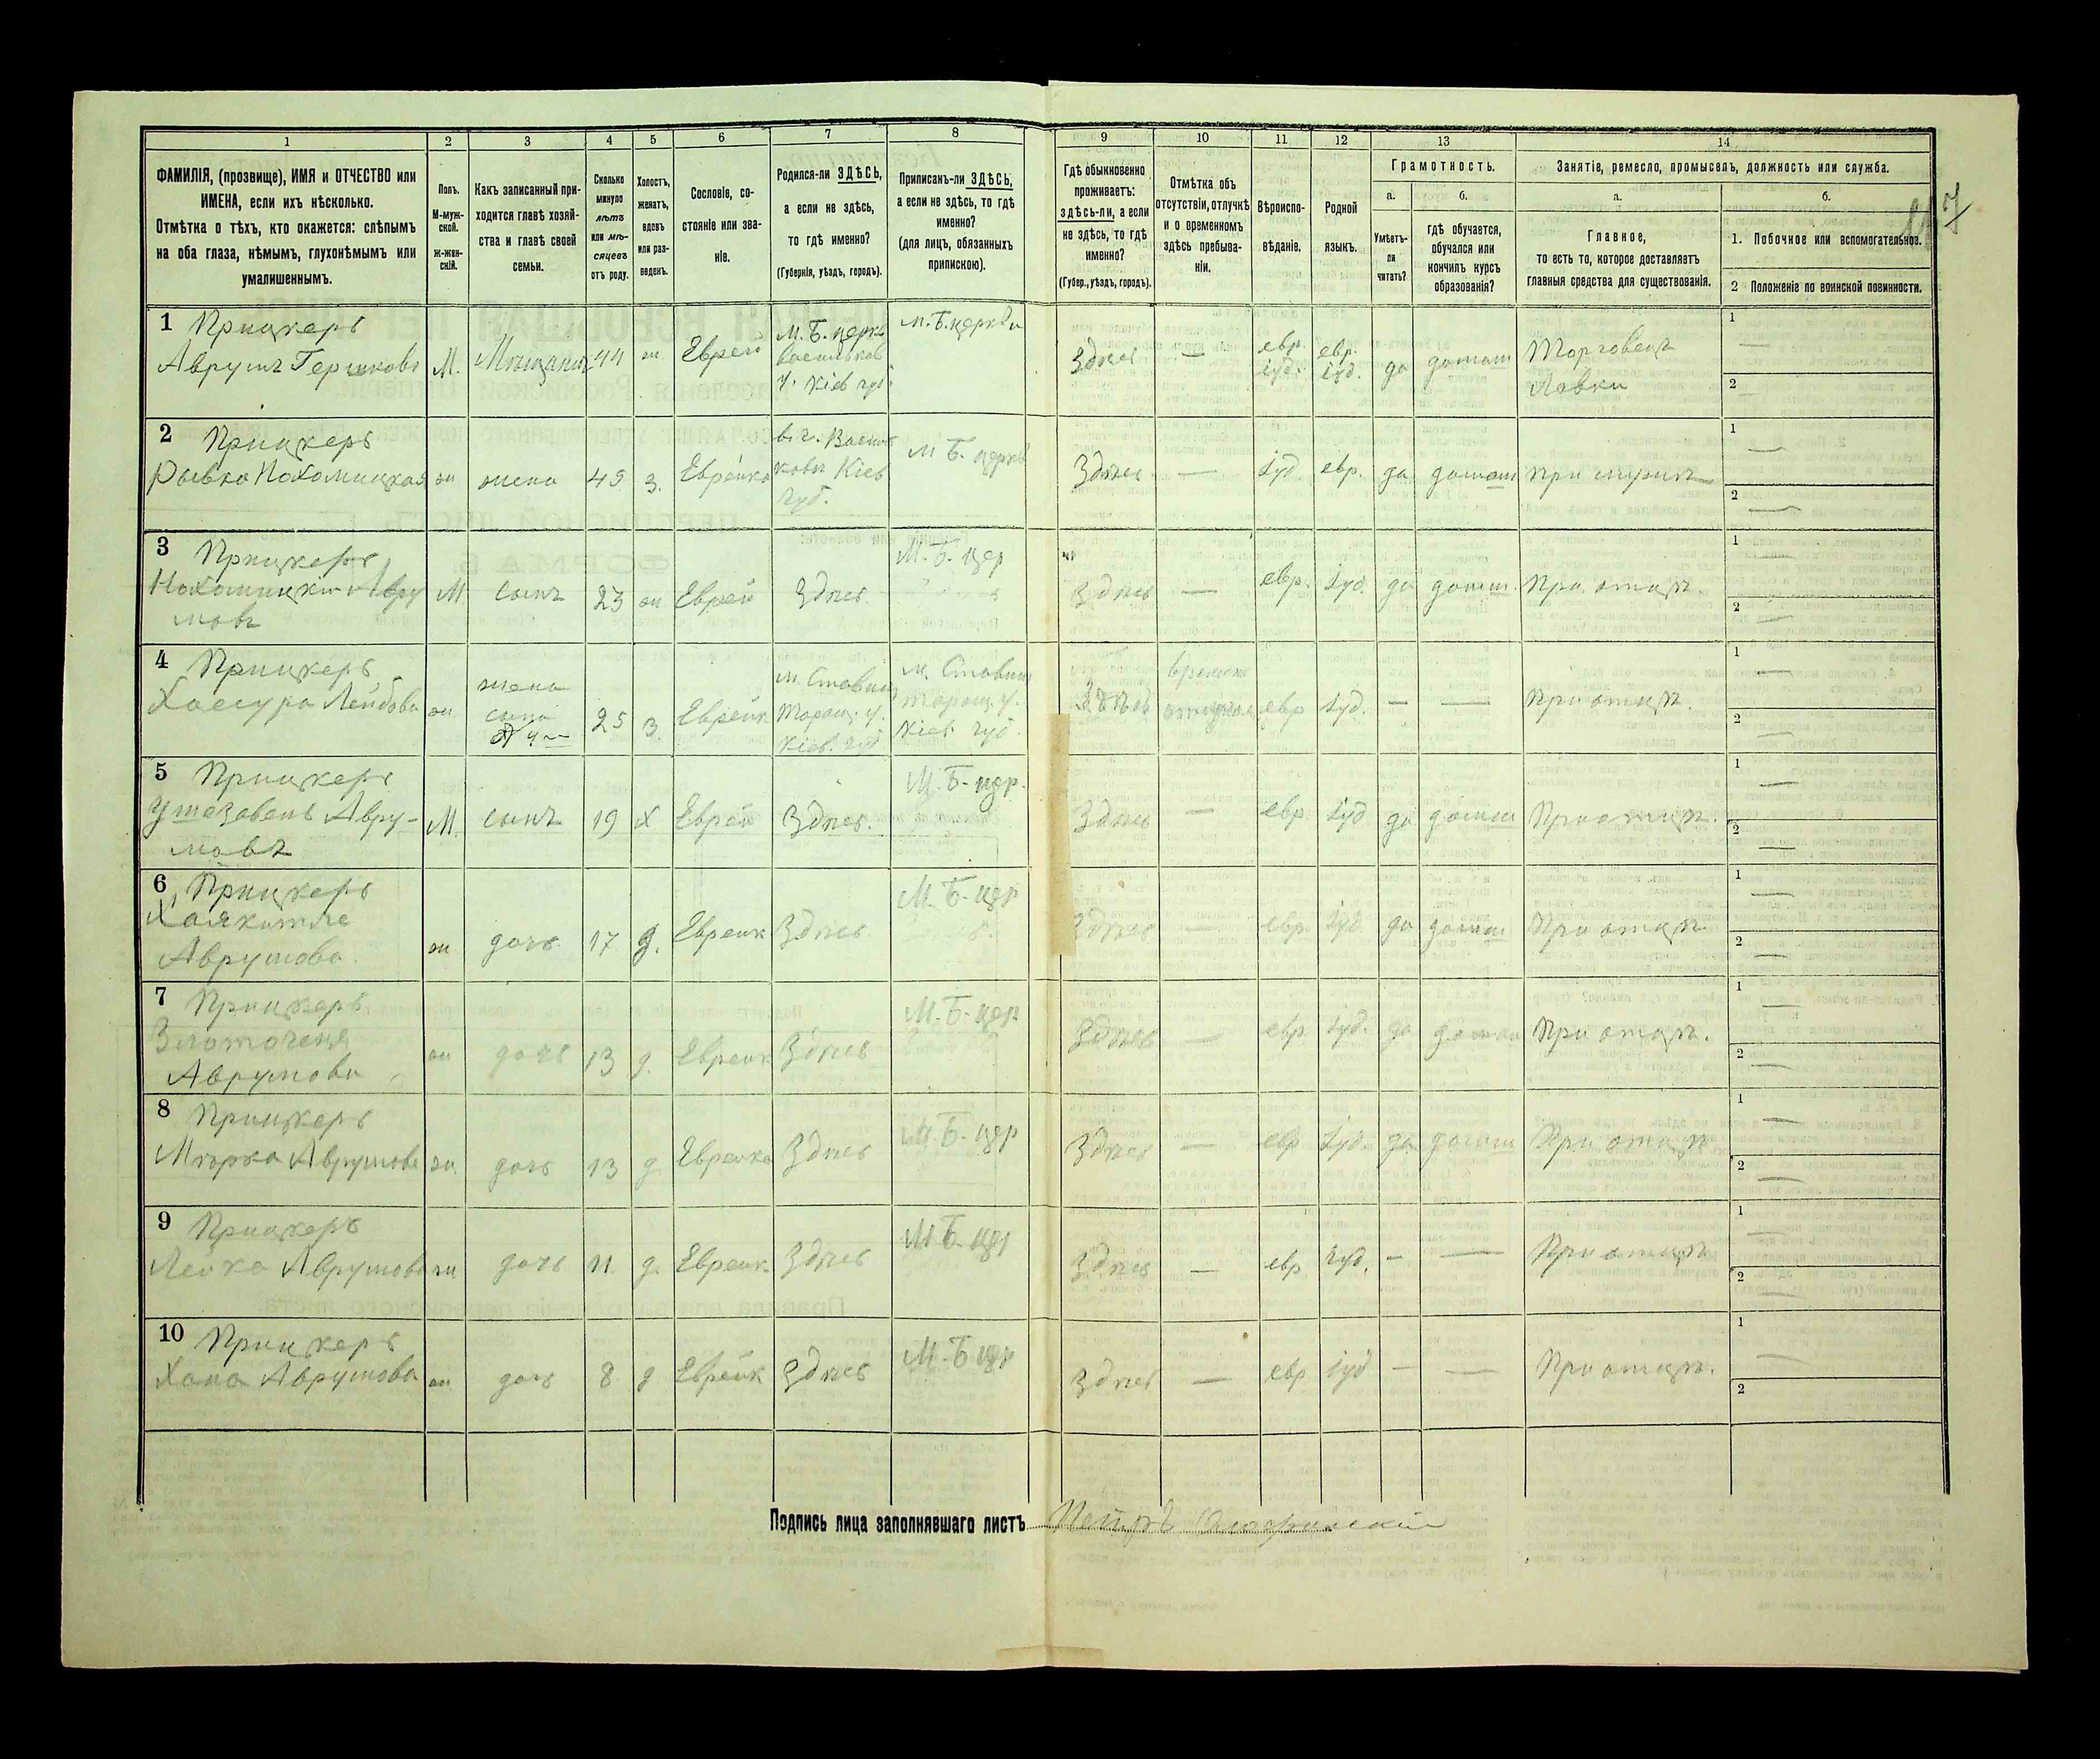 1 2 3 4 5 6 7 8 9 10 11 12 13 14
ФАМИЛІЯ, (прозвище), ИМЯ и ОТЧЕСТВО или
ИМЕНА, если ихъ нѣсколько.
Отмѣтка о тѣхъ, кто окажется: слѣпымъ
на оба глаза, нѣмымъ, глухонѣмымъ или
умалишеннымъ.
Полъ.
М-муж-
ской.
ж-жен-
скій.
Какъ записанный при-
ходится главѣ хозяй-
ства и главѣ своей
семьи.
Сколько
минуло
лѣтъ
или мѣ-
сяцевъ
отъ роду.
Холостъ,
женатъ,
вдовъ
или раз-
веденъ.
Сословіе, со-
стояніе или зва-
ніе.
Родился-ли ЗДѢСЬ,
а если не здѣсь,
то гдѣ именно?
(Губернія, уѣздъ, городъ).
Приписанъ-ли ЗДѢСЬ,
а если не здѣсь, то гдѣ
именно?
(для лицъ, обязанныхъ
припискою).
Гдѣ обыкновенно
проживаетъ:
здѣсь-ли, а если
не здѣсь, то гдѣ
именно?
(Губер., уѣздъ, городъ).
Отмѣтка объ
отсутствіи, отлучкѣ
и о временномъ
здѣсь пребыва-
ніи.
Вѣроиспо-
вѣданіе.
Родной
языкъ.
Грамотность.
а.
Умѣетъ-
ли
читать?
б.
гдѣ обучается,
обучался или
кончилъ курсъ
образованія?
Занятіе, ремесло, промыселъ, должность или служба.
а.
Главное,
то есть то, которое доставляетъ
главныя средства для существованія.
б.
1. Побочное или вспомогательное.
2 Положеніе по воинской повинности.
1 Прицкеръ
Аврумъ Гершковъ
М. Мѣщанинъ 44 ж Еврей
М. Б. церкв
Васильков
у. Кіев губ
м. Б. церкви
Здѣсь — евр. іуд. евр. іуд. да домаш
Торговецъ
Лавки
1 —
2 —
2 Прицкеръ
Рывка Нахомицкая
ж жена 45 з. Еврейка
в г. Васил
ковъ Кіев
губ.
М Б. церкв
Здѣсь — іуд. евр. да домаш при мужѣ
1 —
2 —
3 Прицкеръ
Нахомицкій Авру
мовъ
М сынъ 23 ж Еврей Здѣсь М. Б. цер
Здѣсь — евр. іуд. да домаш. При отцѣ.
1 —
2 —
4 Прицкеръ
Лейбова
ж
жена
сына
25 з. Еврейк
м. Ставищ
Таращ. у.
Кіев. губ
м. Ставищ
Таращ. у.
Кіев. губ.
Здѣсь евр іуд. — — При отцѣ.
1 —
2 —
5 Прицкеръ
Авру-
мовъ
М. сынъ 19 х Еврей Здѣсь. М. Б. цер.
Здѣсь — евр іуд да домаш При отцѣ.
1 —
2 —
6 Прицкеръ
Аврумова.
ж дочь 17 д. Еврейк Здѣсь М. Б. цер
Здѣсь — евр іуд. да домаш При отцѣ
1 —
2 —
7 Прицкеръ
Аврумова
ж дочь 13 д. Еврейк Здѣсь М. Б. цер
Здѣсь — евр іуд. да домаш При отцѣ.
1 —
2 —
8 Прицкеръ
Аврумова
ж. дочь 13 д Еврейка Здѣсь М. Б. цер
Здѣсь — евр іуд. да домаш При отцѣ
1 —
2 —
9 Прицкеръ
Лейка Аврумова
ж дочь 11. д. Еврейк. Здѣсь М Б. цер
Здѣсь — евр іуд. — — При отцѣ
1 —
2 —
10 Прицкеръ
Хана Аврумова
ж дочь 8 д Еврейк Здѣсь М. Б цер
Здѣсь — евр іуд — — При отцѣ.
1 —
2
Подпись лица заполнявшаго листъ